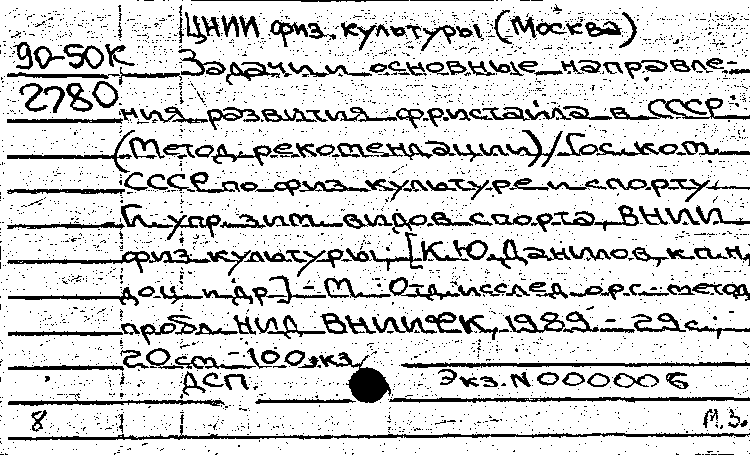 ЦНИИ физ. культуры (Москва)
90-50К
Задачи и основные направле-
2780
ния развития фристайла в СССР:
(Метод. рекомендации)/Гос. ком.
СССР по физ. культуре и спорту.
Гл. упр. зим. видов спорта, ВНИИ
физ. культуры; [К.Ю. Данилов, к.п.н,
доц. и др.] - М. : Отд. исслед. орг.-метод
пробл. НИД ВНИИФК, 1989. - 29 с.;
20 см - 100 экз.
ДСП. Экз. N 000006
8 М.З.